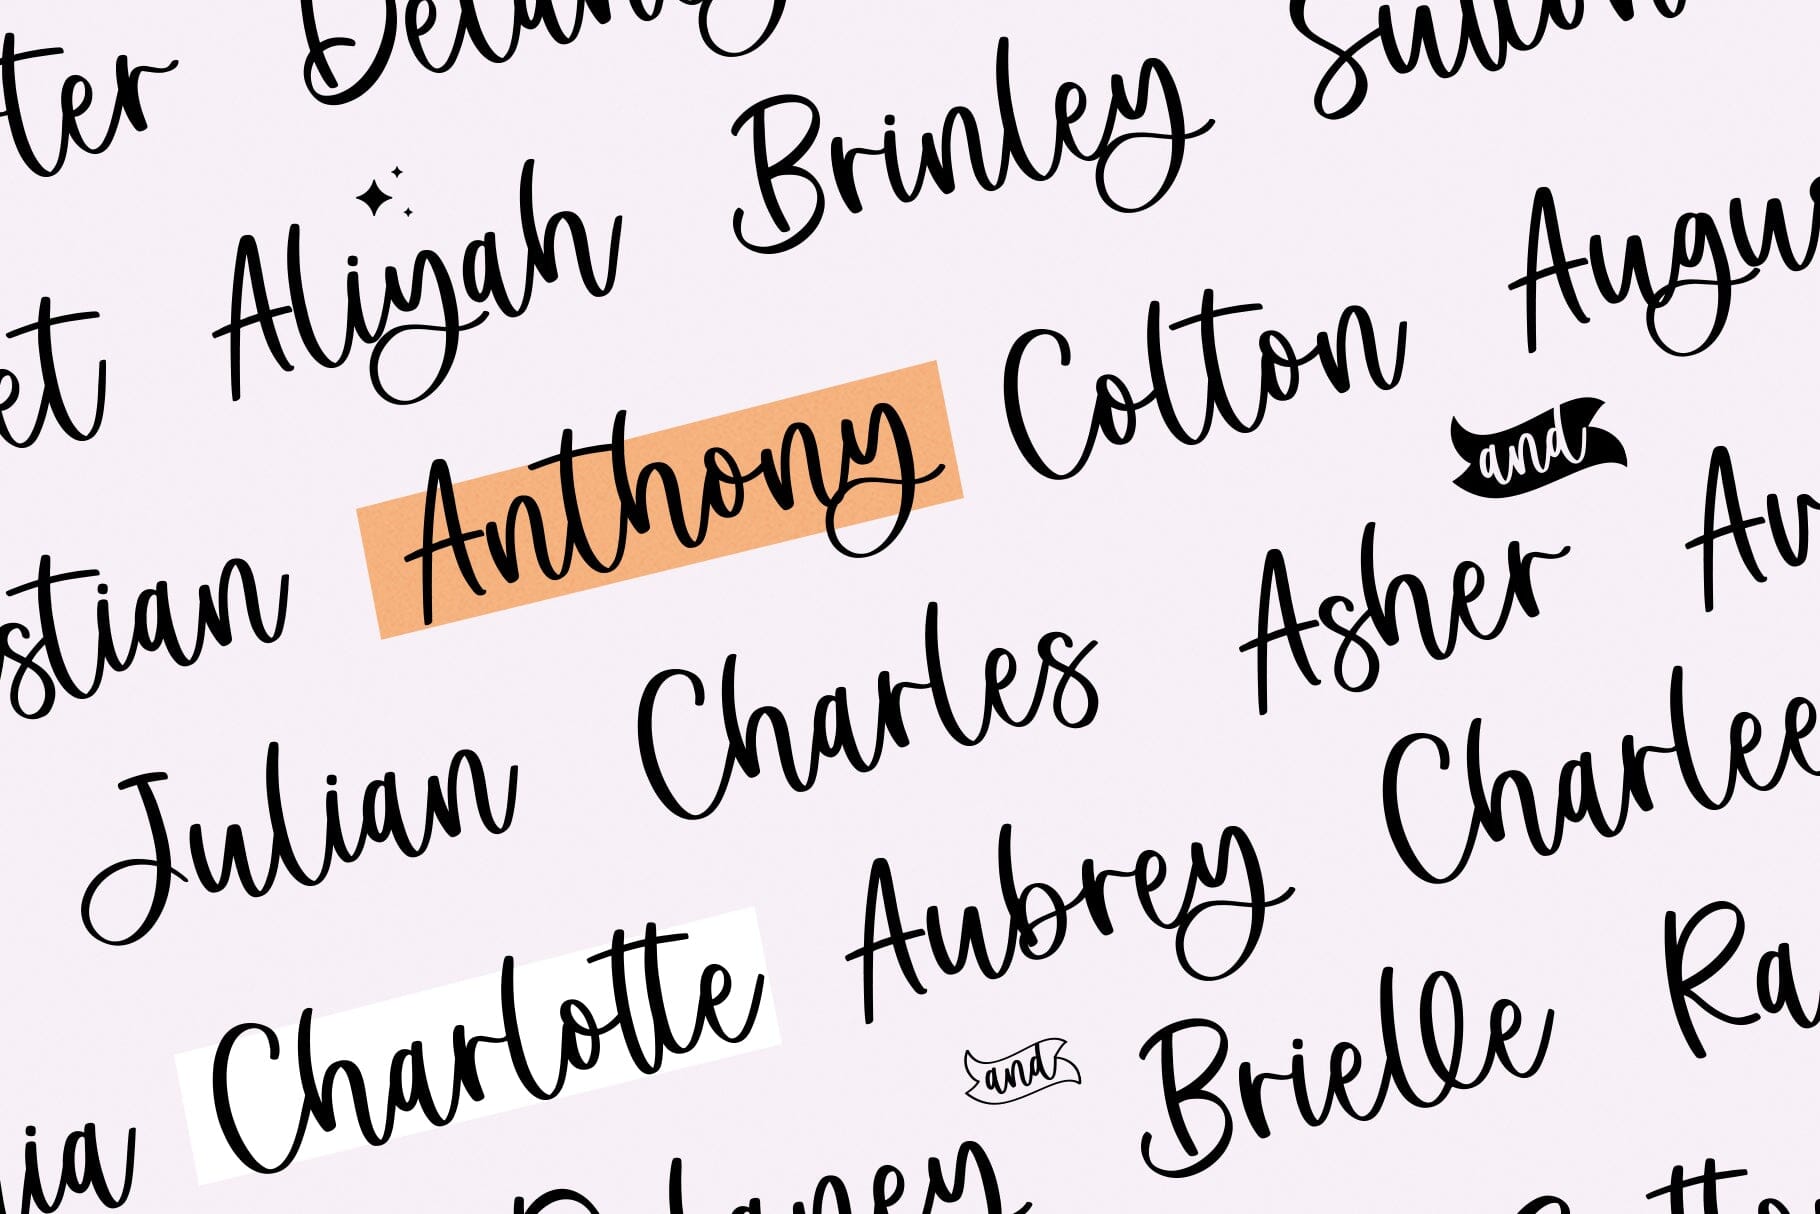 ter Delaney Sutton
Aliyah Brinley
et Anthony Colton Augu
stian Charles Asher Av
Julian Aubrey Charlee
Charlotte Brielle Ra
ia Delaney
and
and